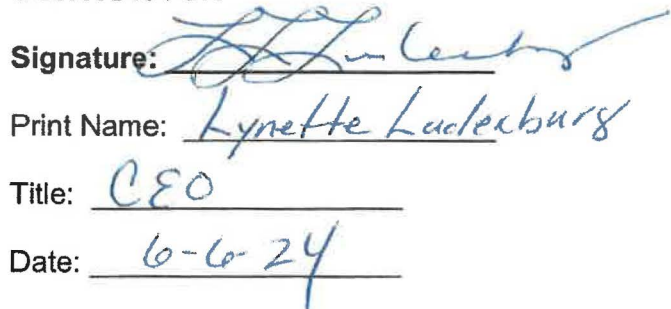 Signature:
Print Name: Lynette Ladenburg
Title: CEO
Date: 6-6-24